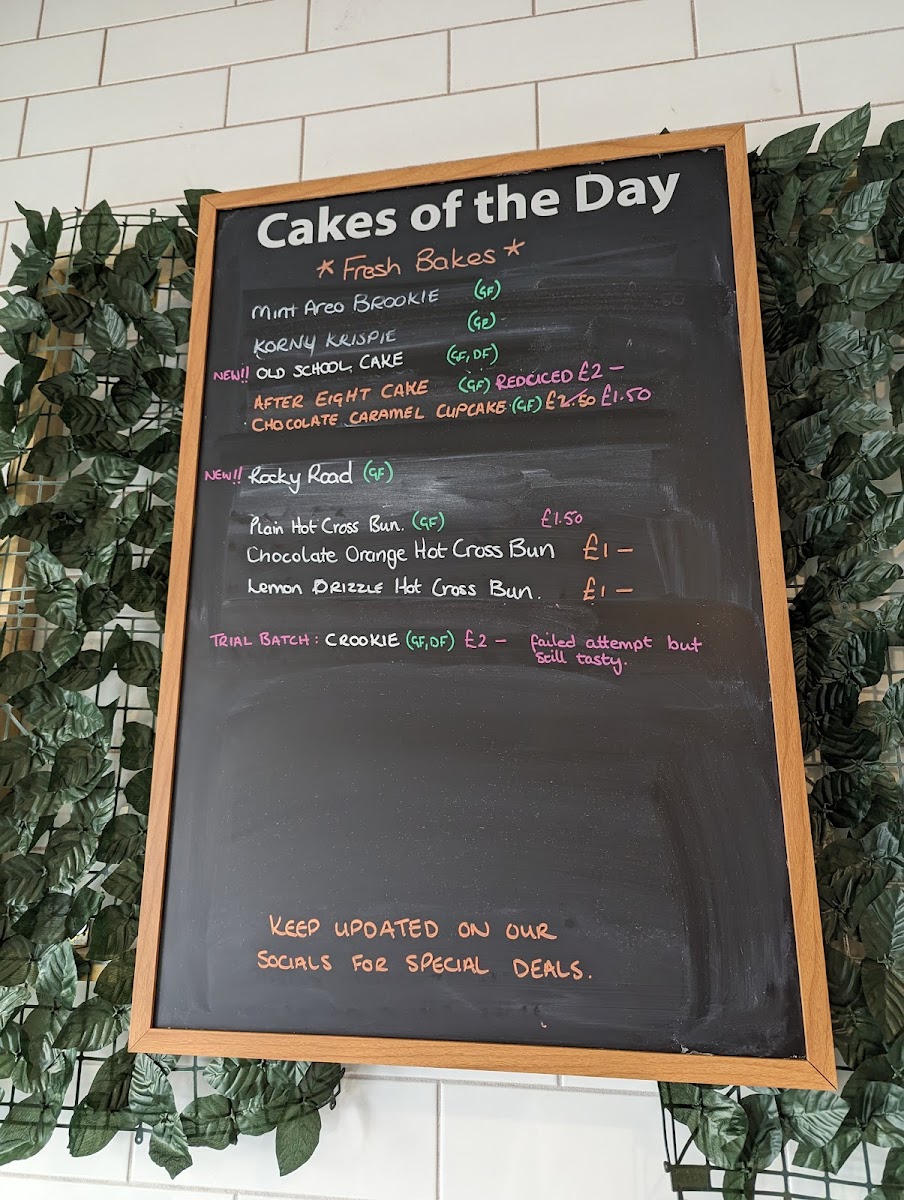 Cakes of the Day
* Fresh Bakes *
Mint Areo BROOKIE (GF)
KORNY KRISPIE (GF)
NEW!! OLD SCHOOL CAKE (GF, DF)
AFTER EIGHT CAKE (GF) REDUCED £2 -
CHOCOLATE CARAMEL CUPCAKE (GF) £2.50 £1.50
NEW!! Rocky Road (GF)
Plain Hot Cross Bun. (GF) £1.50
Chocolate Orange Hot Cross Bun £1 -
Lemon DRIZZLE Hot Cross Bun. £1 -
TRIAL BATCH: CROOKIE (GF, DF) £2 - failed attempt but
still tasty.
KEEP UPDATED ON OUR
SOCIALS FOR SPECIAL DEALS.